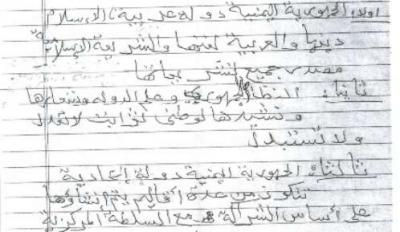 اولاً: الجمهورية اليمنية دولة عربية، الاسلام
دينها والعربية لغتها والشريعة الإسلامية
مصدر جميع التشريعات
ثانياً: النظام الجمهوري وعلم الدولة وشعارها
ونشيدها الوطني ثوابت لا تعدل
ولا تستبدل
ثالثاً: الجمهورية اليمنية دولة إتحادية
تتكون من عدة أقاليم يتم إنشاؤها
على أساس الشراكة مع السلطة المركزية